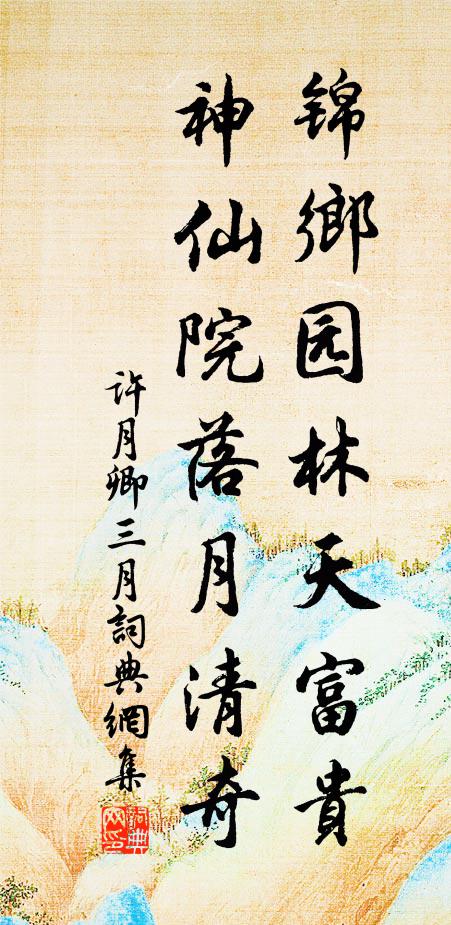 锦鄉园林天富貴
神仙院落月清奇
許月卿三月詞典網集
詞典网印